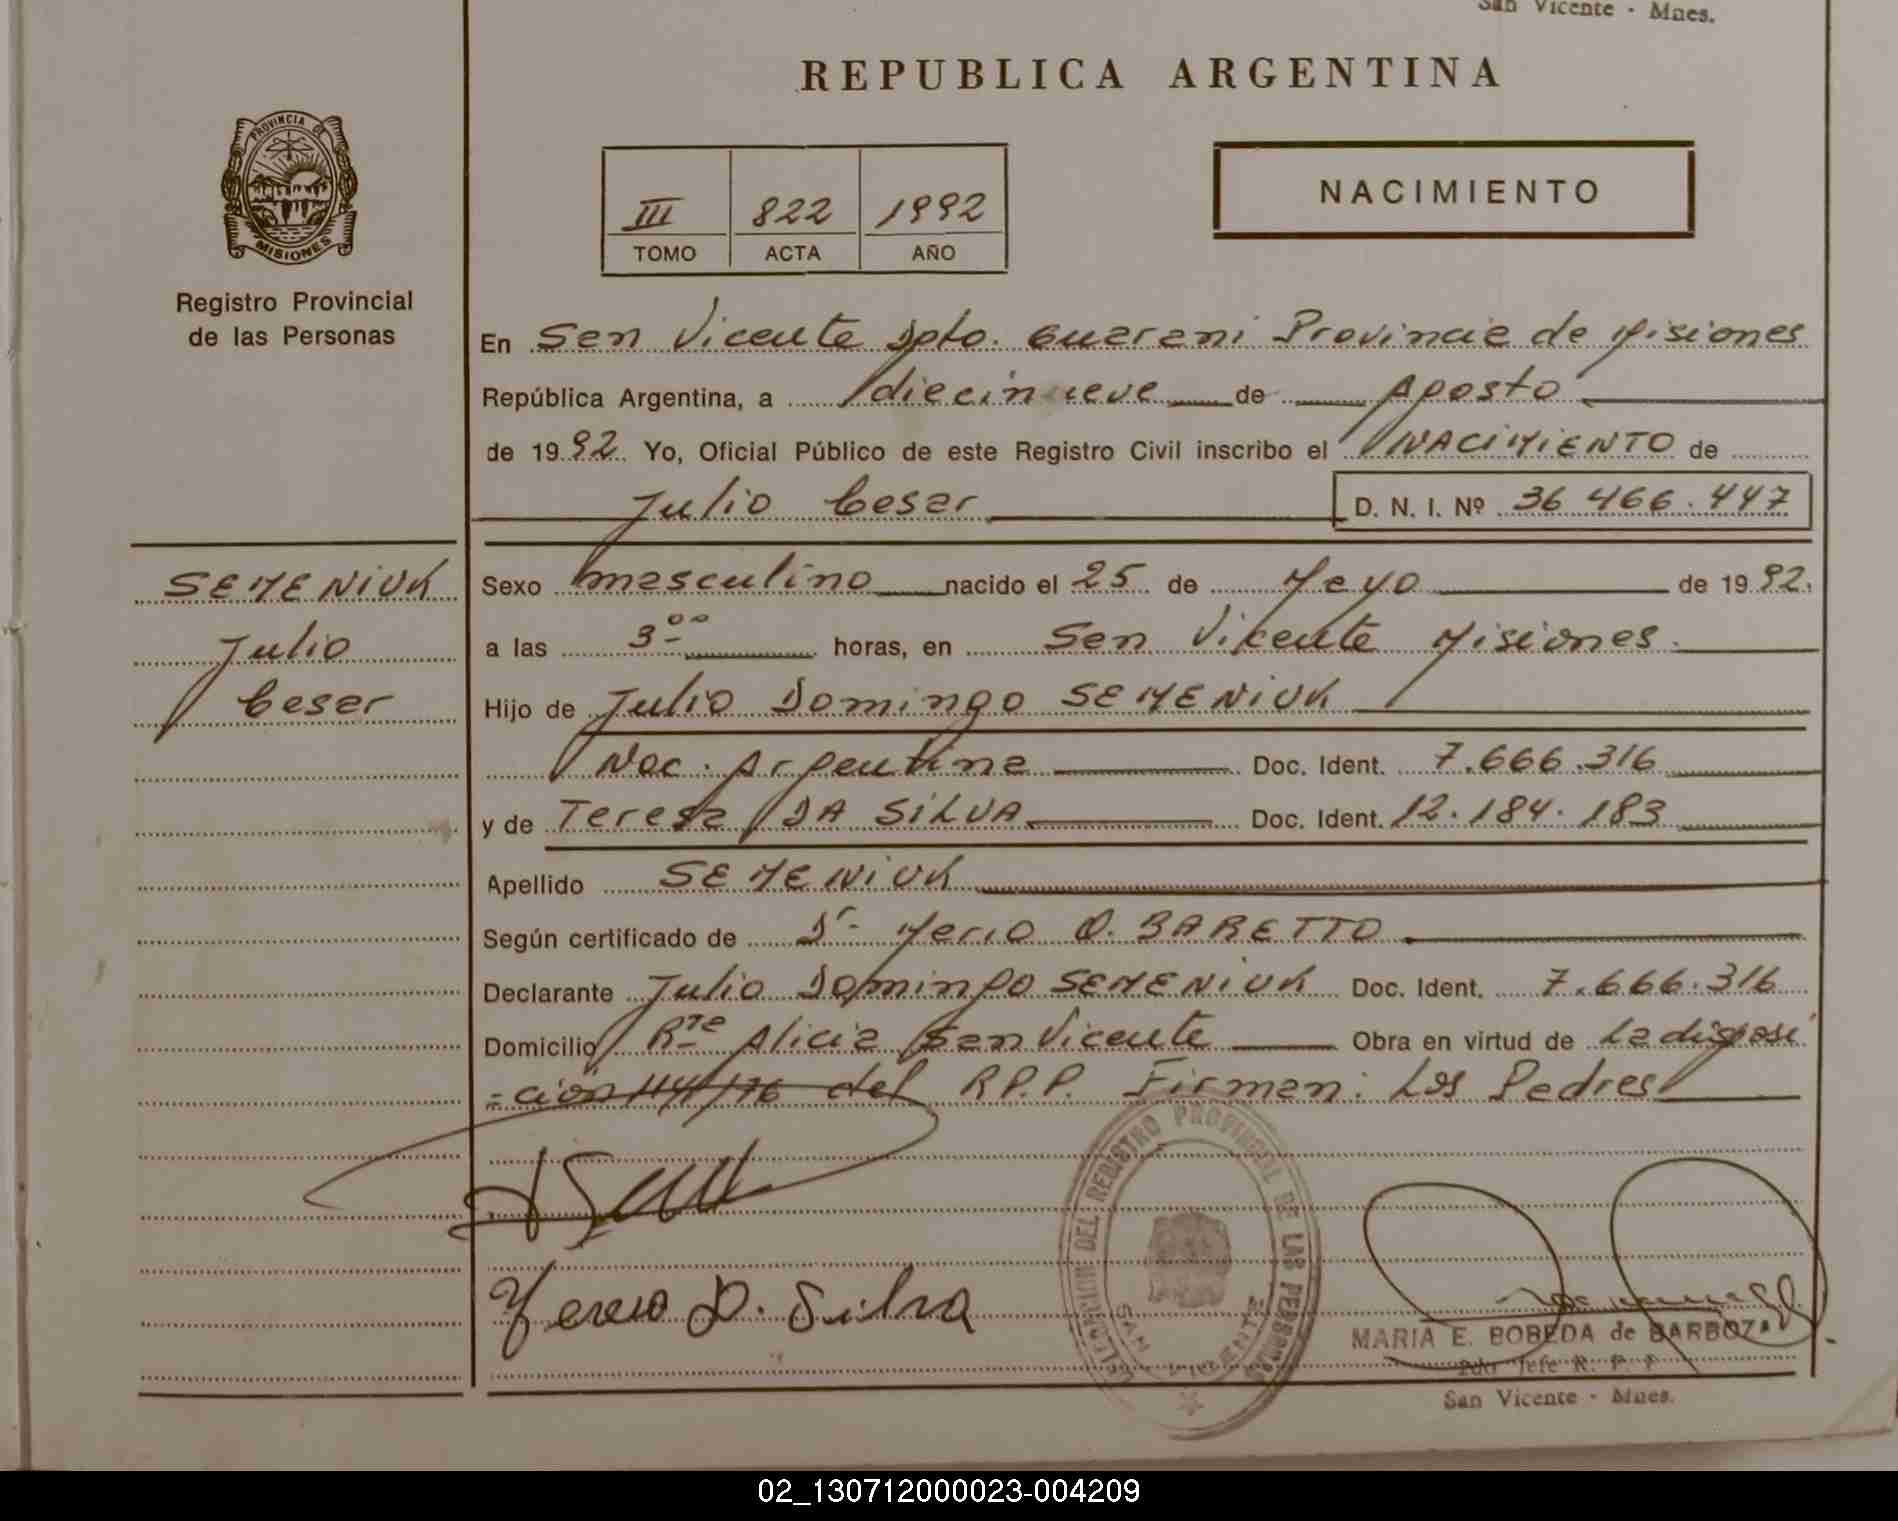 San Vicente - Mnes.
REPUBLICA ARGENTINA
PROVINCIA DE
MISIONES
Registro Provincial
de las Personas
III 822 1992
TOMO ACTA AÑO
NACIMIENTO
En San Vicente Dpto. Guarani Provincia de Misiones
República Argentina, a diecinueve de Agosto
de 1992 Yo, Oficial Público de este Registro Civil inscribo el NACIMIENTO de
Julio Cesar D. N. I. Nº 36 466.447
SEMENIUK
Julio
Cesar
Sexo masculino nacido el 25 de Mayo de 1992.
a las 3°° horas, en San Vicente Misiones.
Hijo de Julio Domingo SEMENIUK
Nac. Argentina Doc. Ident. 7.666.316
y de Teresa DA SILVA Doc. Ident. 12.184.183
Apellido SEMENIUK
Según certificado de Dr. Mario O. BARETTO
Declarante Julio Domingo SEMENIUK Doc. Ident. 7.666.316
Domicilio Rte Alicia San Vicente Obra en virtud de La disposi
-cion 144/76 del R.P.P. Firman: Los Padres
DELEGACION DEL REGISTRO PROVINCIAL DE LAS PERSONAS
SAN VICENTE
D. Silva
MARIA E. BOBEDA de BARBOZA
2do Jefe R. P. P
San Vicente - Mnes.
02_130712000023-004209